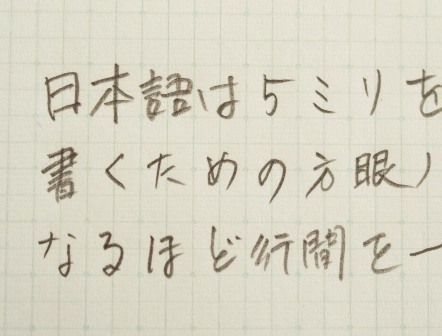 日本語は5ミリを
書くための方眼ノ
なるほど行間を一